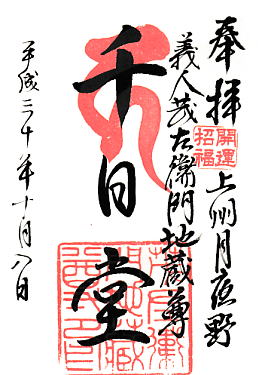 奉拝 上州月夜野
開運
招福
義人茂左衛門地蔵尊
千日堂
平成三十年十月八日